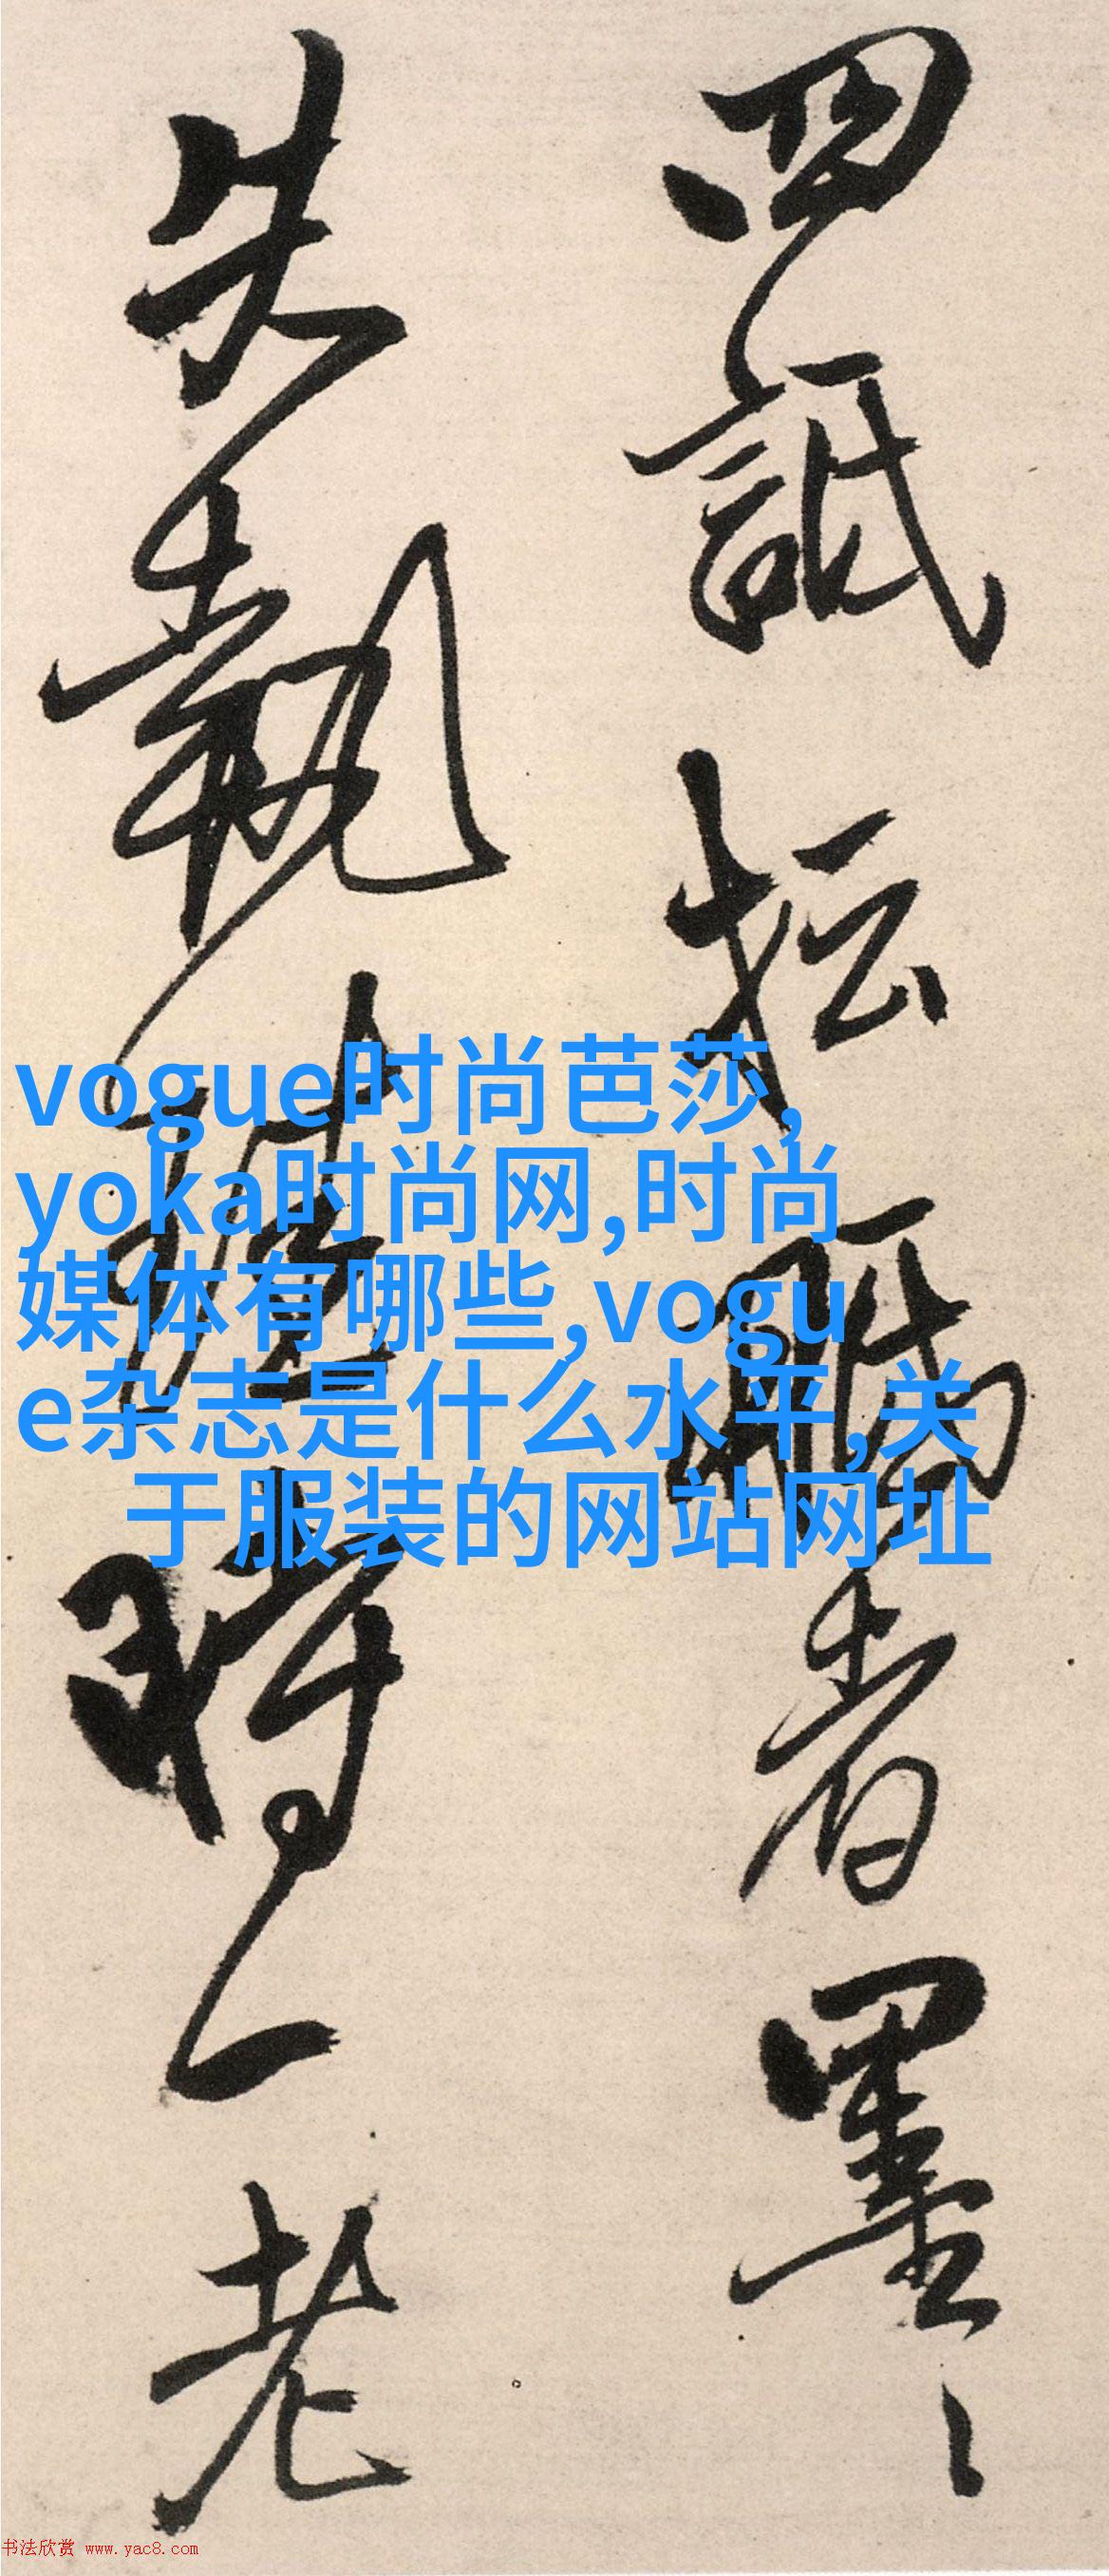 四詆坛
者墨
失執
時一老
vogue时尚芭莎,
yoka时尚网,时尚
媒体有哪些,vogu
e杂志是什么水平,关
于服装的网站网址
书法欣赏 www.yac8.com